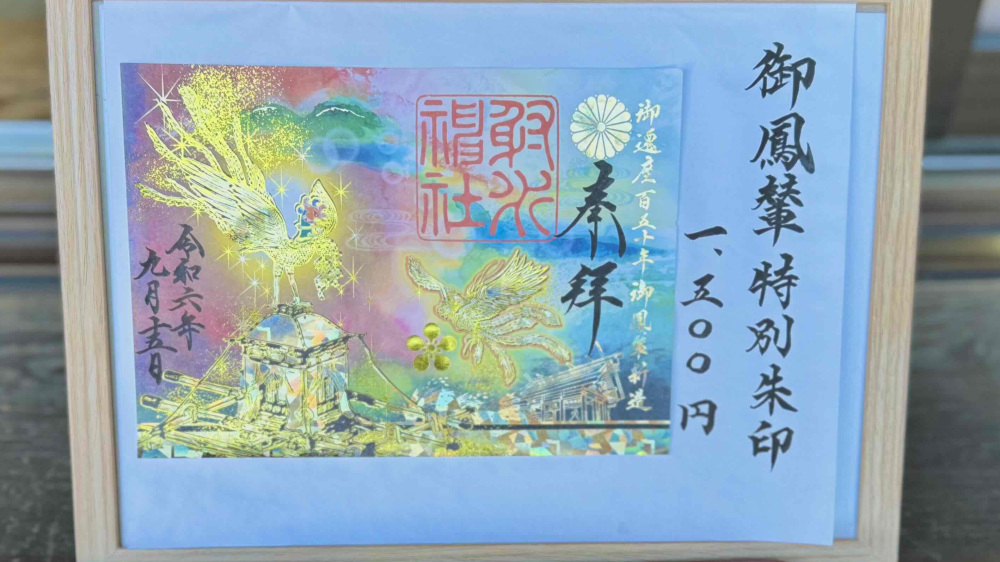 御鳳輦特別朱印
一、五〇〇円
御遷座百五十年御鳳輦新造
奉拝
射水
神社
令和六年
九月十五日